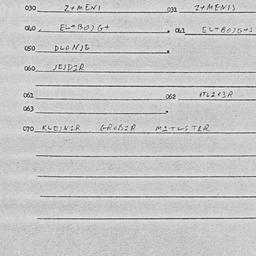 030 Z+MENI 031 Z+MENIS
040 EL+BOJG+ 041 EL+BOJG+S
050 DLANJE
060 JEJDIR
061 062
063
070 KLEJNIR GROBIR MI+LSTER